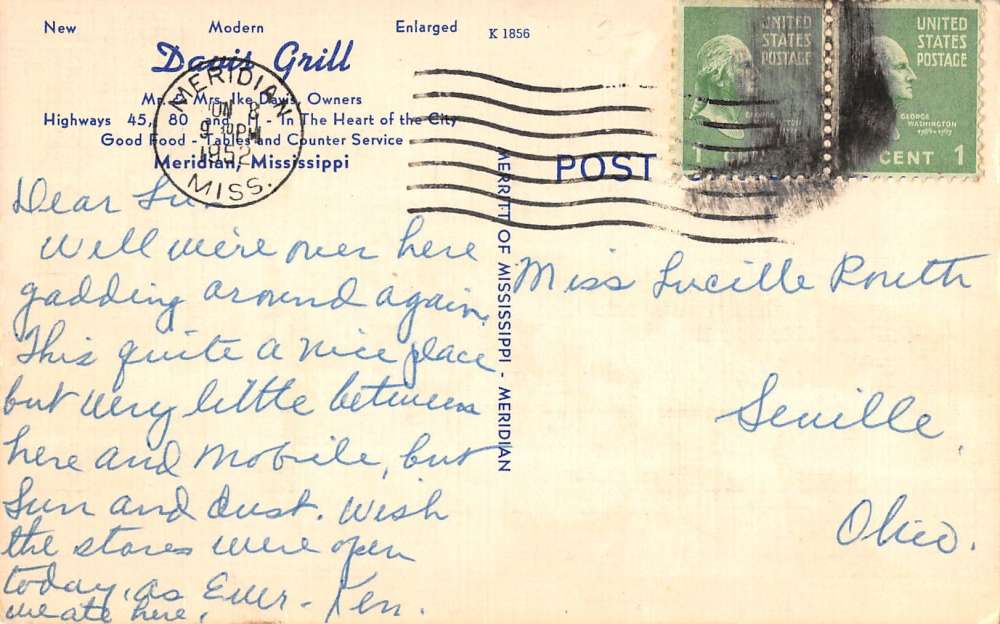 New Modern Enlarged
K 1856
Davis Grill
Mr. & Mrs. Ike Davis, Owners
Highways 45, 80 and 11 - In The Heart of the City
Good Food - Tables and Counter Service
Meridian, Mississippi
MERIDIAN
JUN 8
9 PM
1952
MISS.
UNITED
STATES
POSTAGE
1 CENT
UNITED
STATES
POSTAGE
GEORGE
WASHINGTON
1789-1797
CENT 1
POST
MERRITT OF MISSISSIPPI - MERIDIAN
Dear Lu.
Well we're over here
gadding around again.
This quite a nice place
but very little between
here and Mobile, but
Sun and dust. Wish
the stores were open
today, as Ever - Ken.
we ate here.
Miss Lucille Routh
Seville
Ohio.